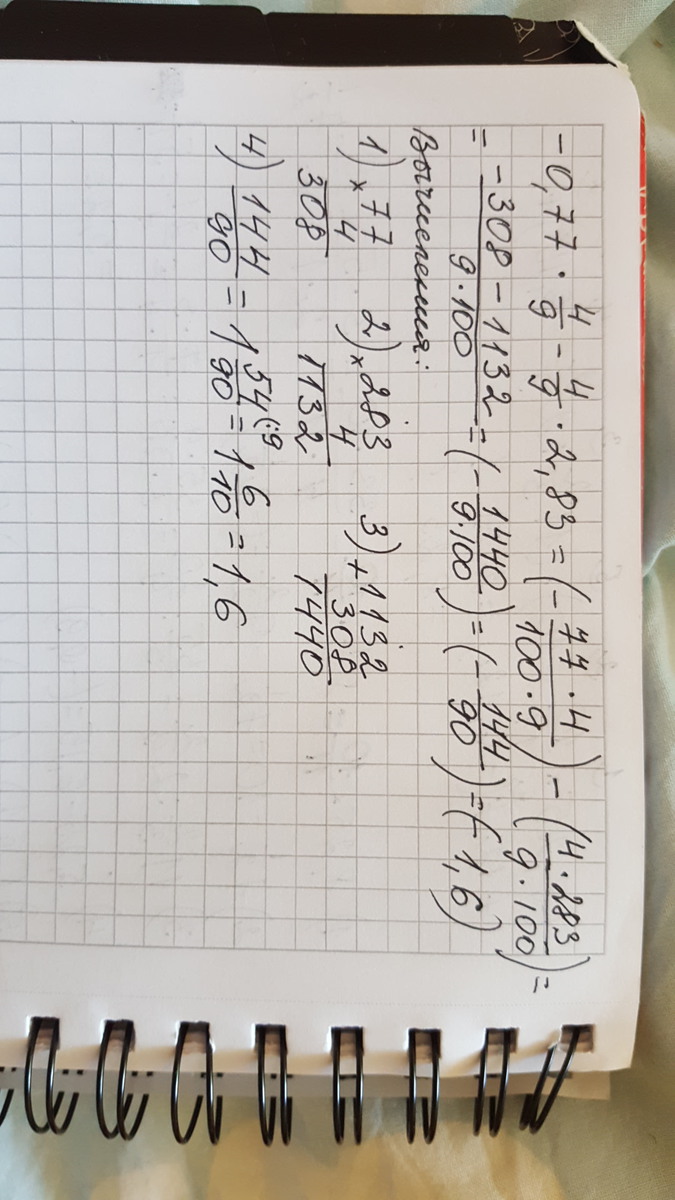 -0,77 · 4/9 - 4/9 · 2,83 = (- 77·4/100·9) - (4·283/9·100) =
= -308 - 1132/9·100 = (- 1440/9·100) = (- 144/90) = (- 1,6)
Вычисления:
1) × 77
4
308
2) × 283
4
1132
3) + 1132
308
1440
4) 144/90 = 1 54/90 (:9 = 1 6/10 = 1,6